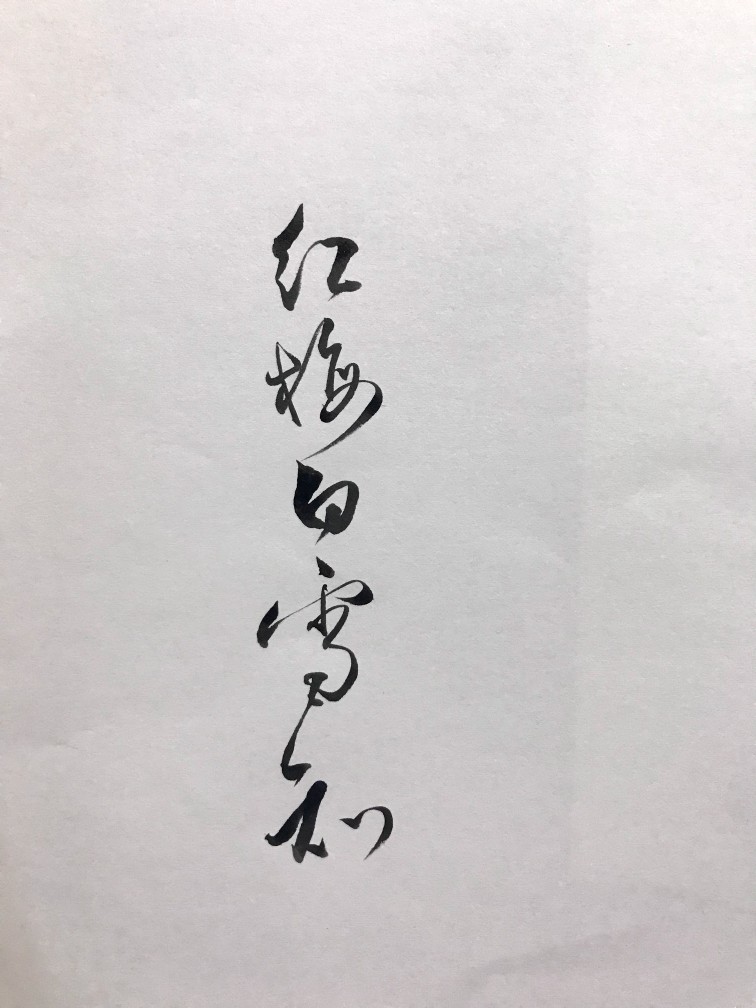 红梅白雪知